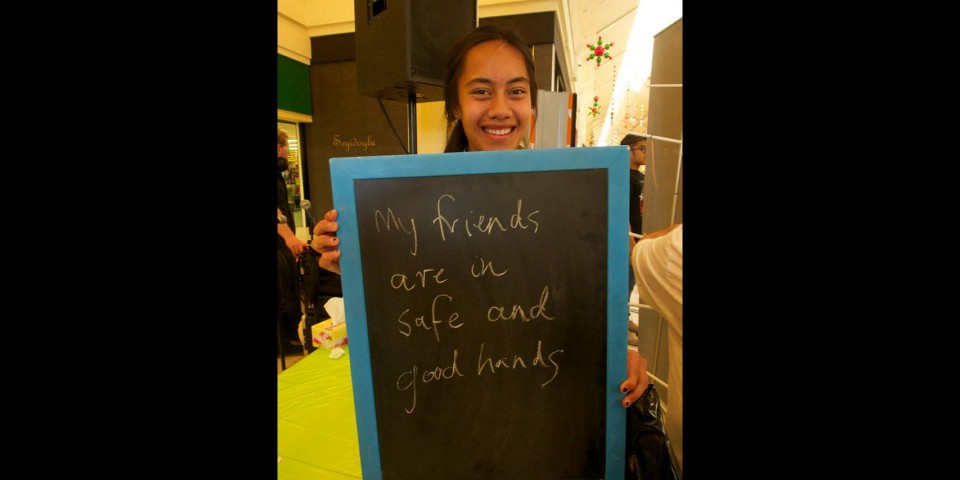 Segidoglu
My friends
are in
safe and
good hands